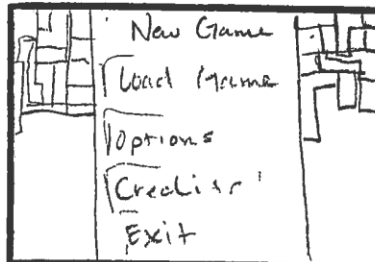 New Game
Load Game
Options
Credits
Exit